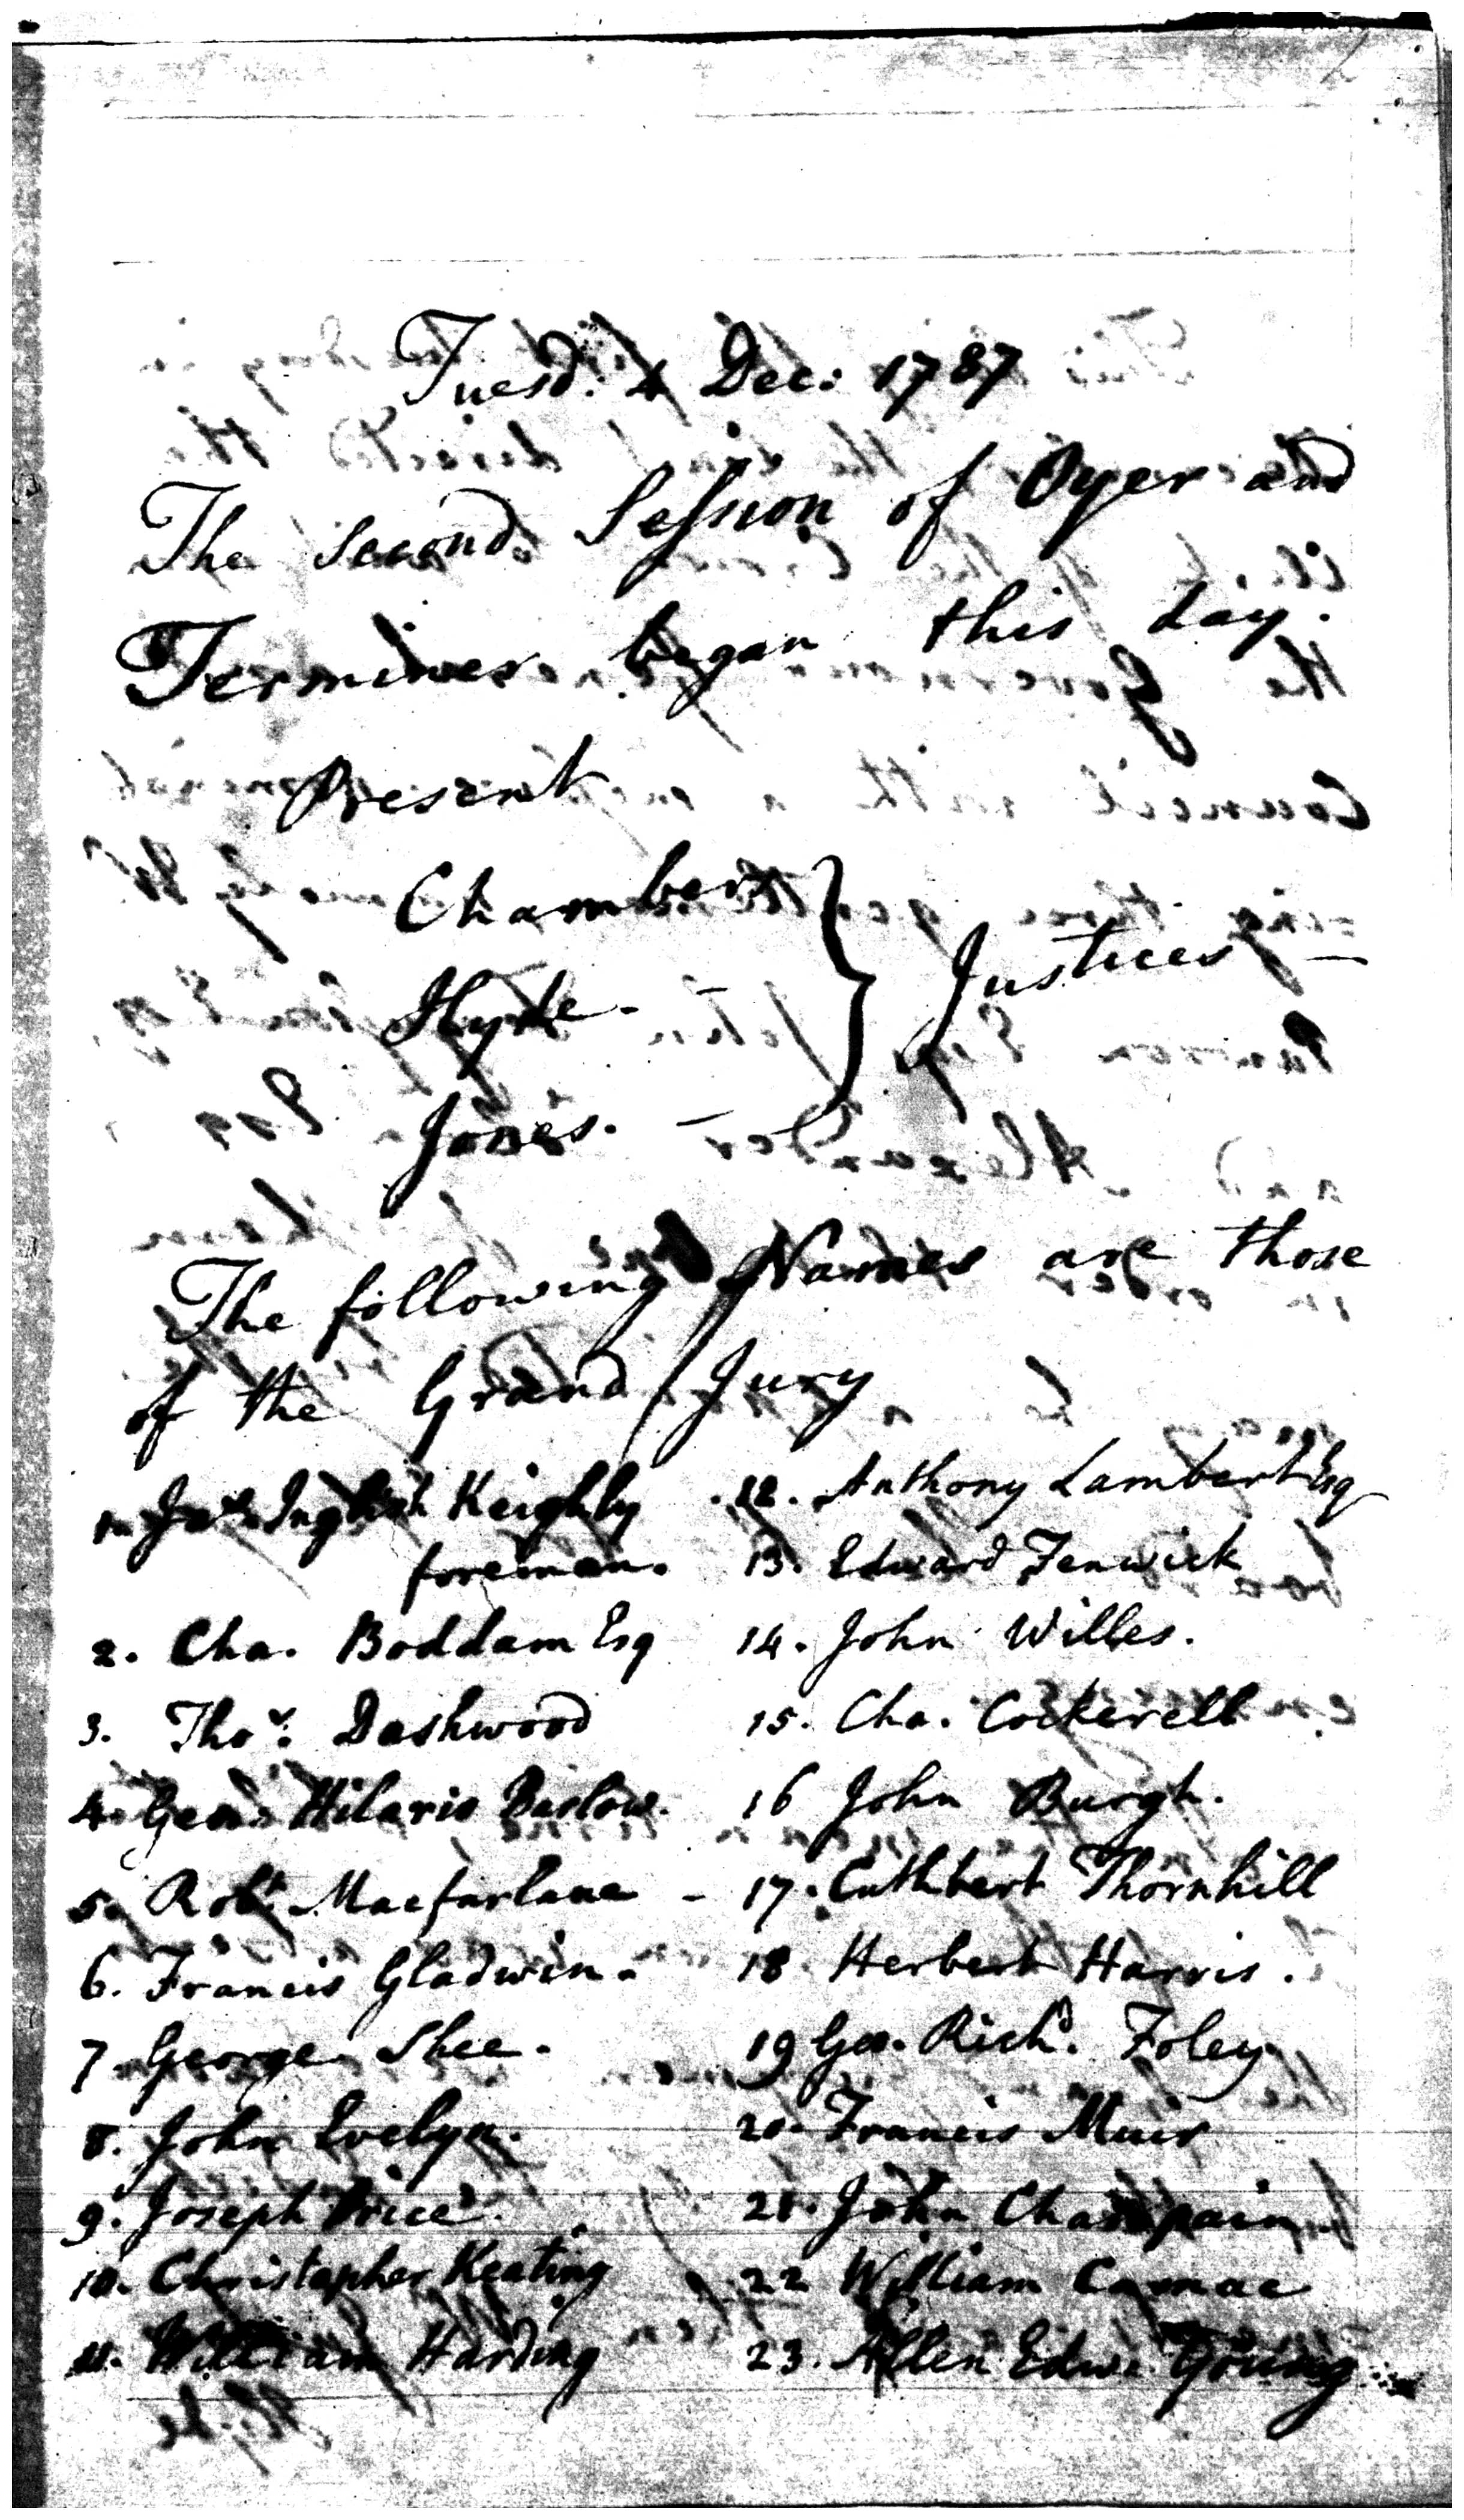 Tuesd: 4 Dec: 1787
The Second Session of Oyer and
Terminer began this day.
Present
Chambers
Hyde -
Justices -
Jones. -
The following Names are those
of the Grand Jury
1. Jas. Inglish Keighly
foreman.
2. Cha. Boddam Esq
3. Thos: Dashwood
4. Geo: Hilario Barlow.
5. Robt. Macfarlane -
6. Francis Gladwin.
7. George Shee.
8. John Evelyn.
9. Joseph Price.
10. Christopher Keating
11. William Harding
12. Anthony Lambert Esq
13. Edward Fenwick
14. John Willes.
15. Cha. Cockerell
16 John Burgh.
17. Cuthbert Thornhill
18 Herbert Harris.
19 Geo. Richd. Foley
20. Francis Muir
21. John Champain
22 William Camac
23. Allen Edwd. Young